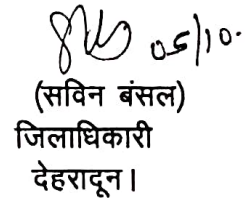 05/10.
(सविन बंसल)
जिलाधिकारी
देहरादून।